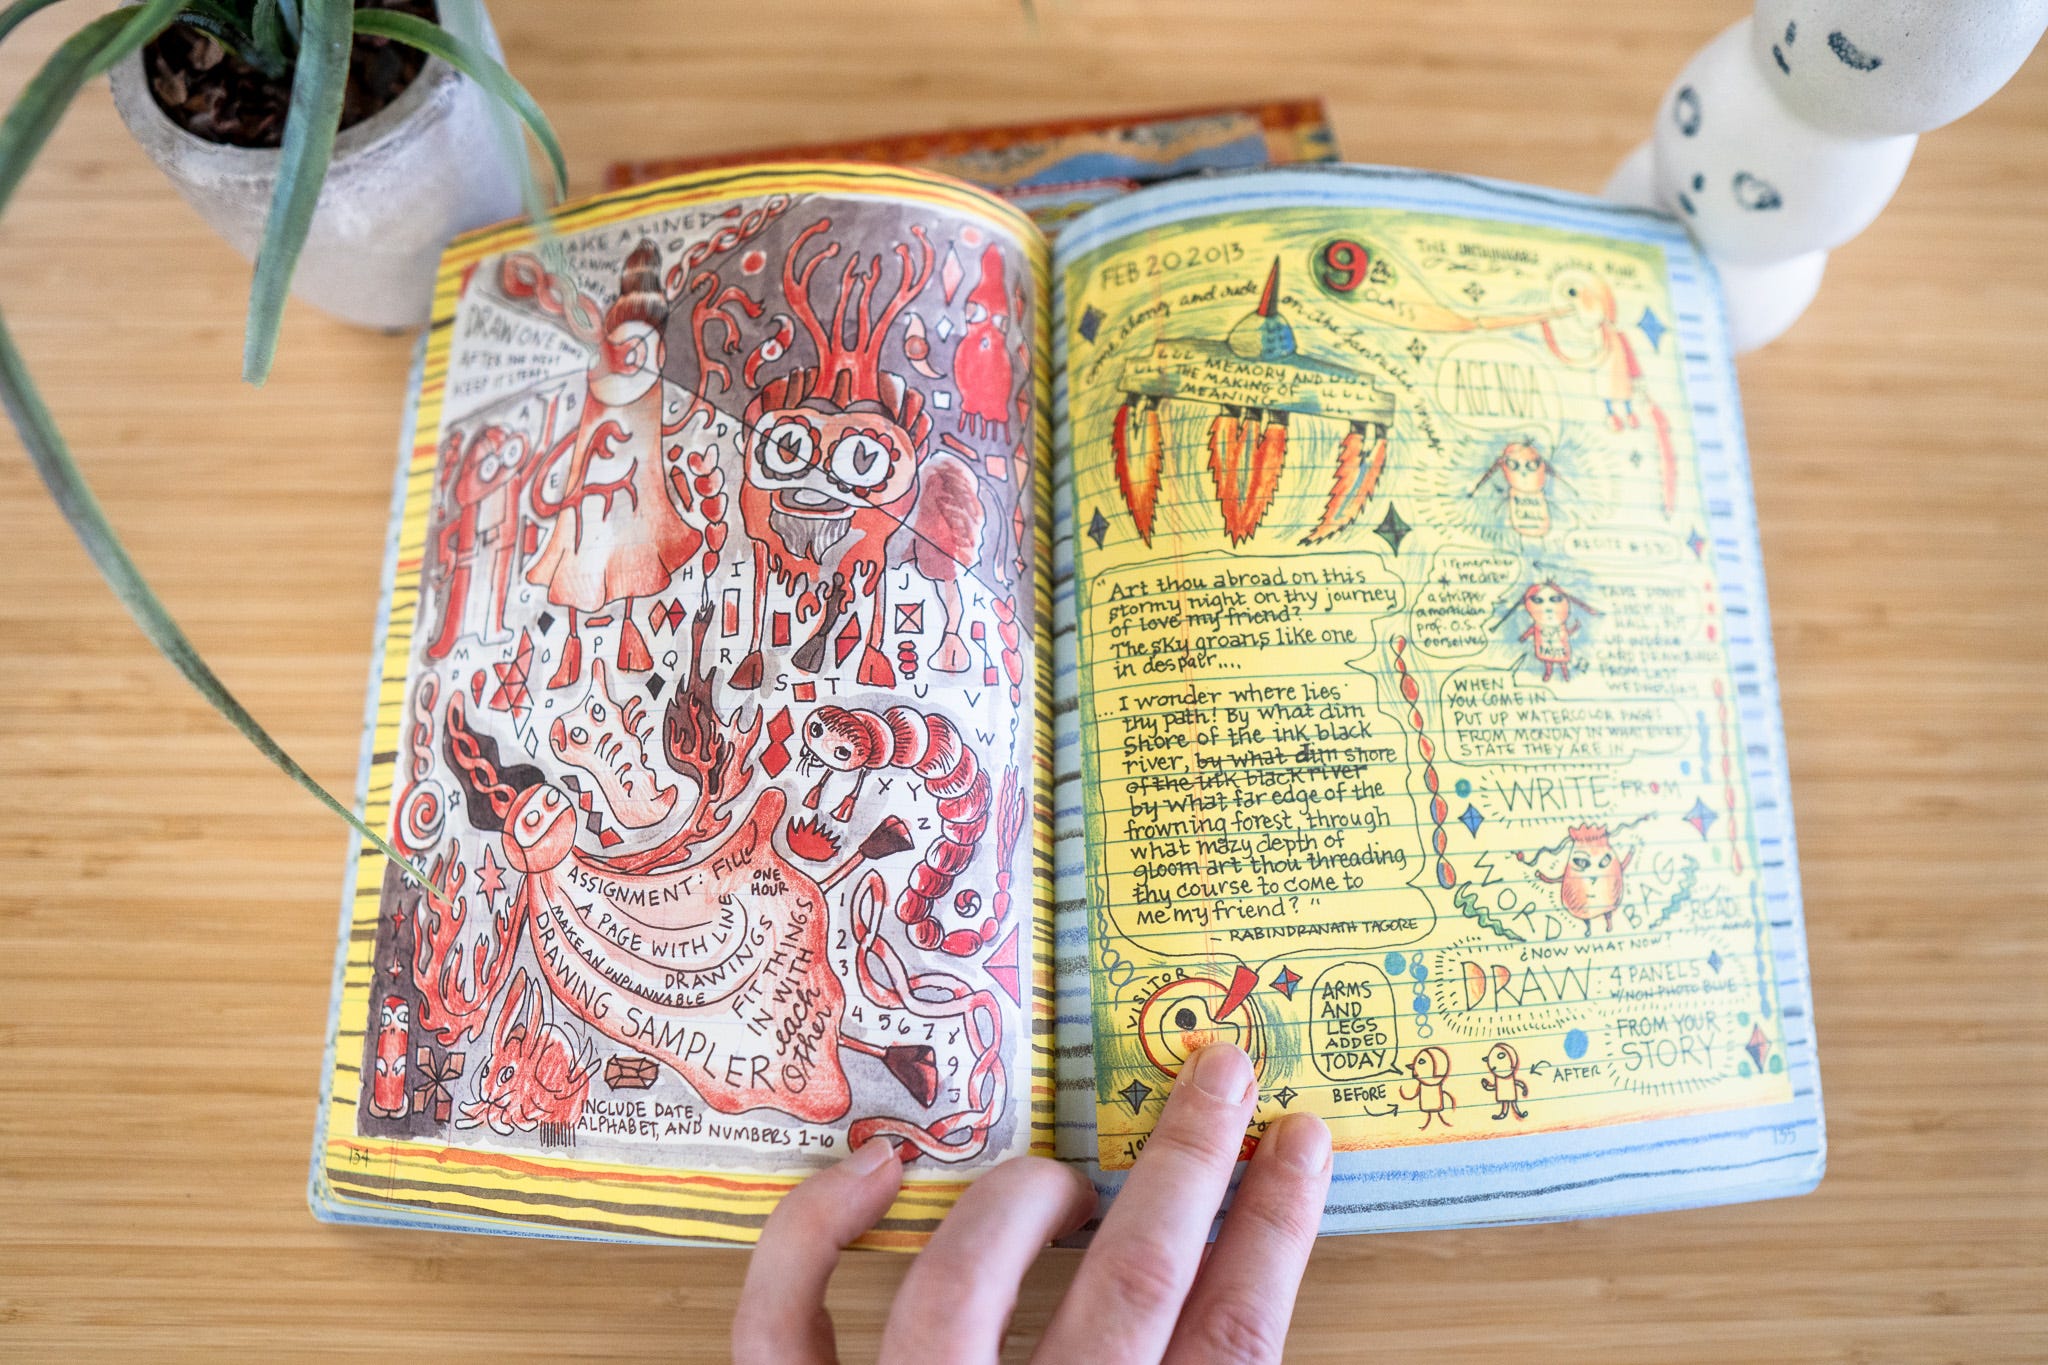 MAKE A LINED
DRAWING
DRAW ONE THING
AFTER THE NEXT
KEEP IT STEADY
A
B
C
D
E
G
H
I
J
K
M
N
O
P
Q
R
S
T
U
V
W
X
Y
Z
ASSIGNMENT: FILL
A PAGE WITH LINE
DRAWINGS
ONE
HOUR
MAKE AN UNPLANNABLE
DRAWING SAMPLER
FIT THINGS
IN WITH
each
Other
1
2
3
4 5 6 7 8
9
INCLUDE DATE,
ALPHABET, AND NUMBERS 1-10
134
FEB 20 2013
9th
CLASS
THE UNTHINKABLE
come along and ride on the fantastic voyage
MEMORY AND
THE MAKING OF
MEANING
AGENDA
ROLL
CALL
I remember
we drew
a stripper
a mortician
prof. O.S.
ourselves
WHEN
YOU COME IN
PUT UP WATERCOLOR PAGES
FROM MONDAY IN WHATEVER
STATE THEY ARE IN
"Art thou abroad on this
stormy night on thy journey
of love my friend?
The sky groans like one
in despair....
....I wonder where lies
thy path! By what dim
shore of the ink black
river, by what dim shore
of the ink black river
by what far edge of the
frowning forest, through
what mazy depth of
gloom art thou threading
thy course to come to
me my friend?"
- RABINDRANATH TAGORE
WRITE FROM
WORD BAG
READ
¿NOW WHAT NOW?
DRAW: 4 PANELS
W/NON PHOTO BLUE
FROM YOUR
STORY
VISITOR
ARMS
AND
LEGS
ADDED
TODAY
BEFORE
AFTER
155